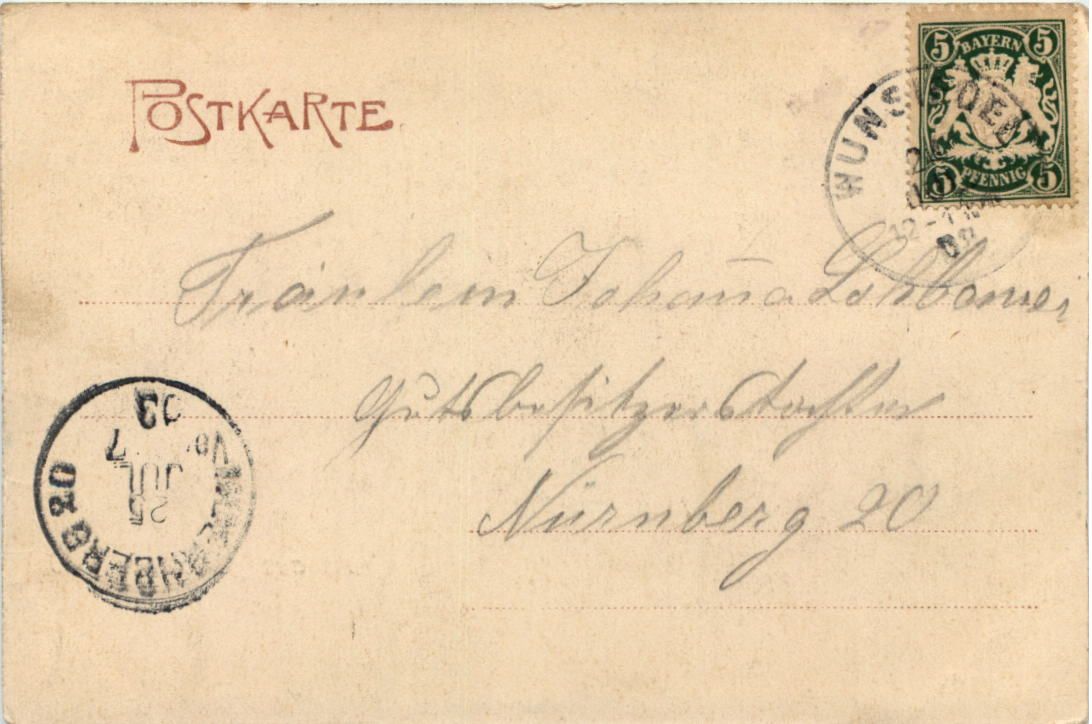 POSTKARTE
5 BAYERN 5
5 PFENNIG 5
WUNSIEDEL
12-1
Fräulein Johanna
Gutsbesitzerstochter
Nürnberg 20
NUERNBERG 20
25
JUL
7
03